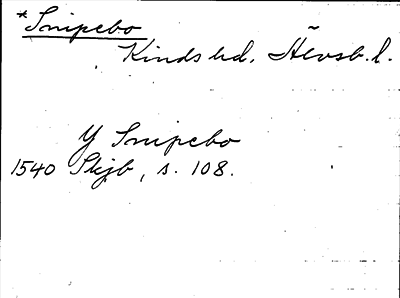 *Snipebo
Kinds hd. Älvsb. l.
Y Snipebo
1540 Skjb, s. 108.